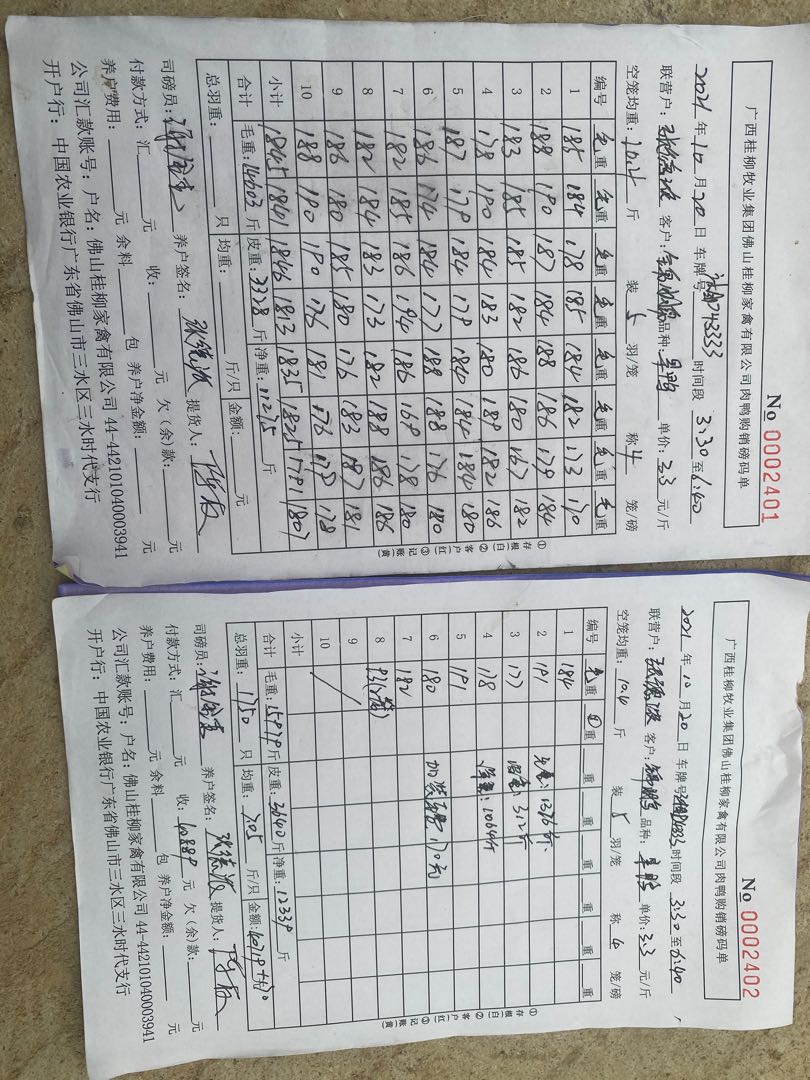 No 0002401
广西桂柳牧业集团佛山桂柳家禽有限公司肉鸭购销磅码单
2021年10月20日 车牌号 时间段 3:30至6:40
联营户: 客户: 品种: 单价:3.3元/斤
空笼均重:10.4斤 装5羽/笼 称4笼/磅
编号 毛重 毛重 毛重 毛重 毛重 毛重 毛重 毛重
1 185 184 178 185 184 182 173 170
2 188 190 187 184 188 186 179 184
3 183 185 185 182 186 180 167 182
4 178 190 184 183 180 189 182 186
5 187 179 184 179 184 184 184 180
6 186 174 184 177 188 188 176 180
7 182 185 186 194 186 169 178 180
8 182 184 183 173 182 188 186 186
9 186 180 185 180 176 183 187 181
10 188 190 190 176 181 176 179 178
小计 1845 1841 1846 1813 1835 1825 1791 1807
合计 毛重:14603斤 皮重:3328斤 净重:11275斤
总羽重: 只 均重: 斤/只 金额: 元
司磅员: 养户签名: 提货人:
付款方式:汇 元 收: 元 欠(余)款: 元
养户费用: 元 余料 包 养户净金额: 元
公司汇款账号:户名:佛山桂柳家禽有限公司 44-442101040003941
开户行:中国农业银行广东省佛山市三水区三水时代支行
①存根(白) ②客户(红) ③记账(黄)
No 0002402
广西桂柳牧业集团佛山桂柳家禽有限公司肉鸭购销磅码单
2021年10月20日 车牌号 时间段 3:30至6:40
联营户: 客户: 品种: 单价:3.3元/斤
空笼均重:10.4斤 装5羽/笼 称4笼/磅
编号 毛重 重 重 重 重 重 重 重
1 184
2 191 毛重:1376斤
3 177 皮重:312斤
4 178 净重:1064斤
5 191
6 180 加装车费170元
7 182
8 93(2笼)
9
10
小计
合计 毛重:15979斤 皮重:3640斤 净重:12339斤
总羽重:1750只 均重:7.05斤/只 金额:40719元
司磅员: 养户签名: 提货人:
付款方式:汇 元 收:40889元 欠(余)款: 元
养户费用: 元 余料 包 养户净金额: 元
公司汇款账号:户名:佛山桂柳家禽有限公司 44-442101040003941
开户行:中国农业银行广东省佛山市三水区三水时代支行
①存根(白) ②客户(红) ③记账(黄)